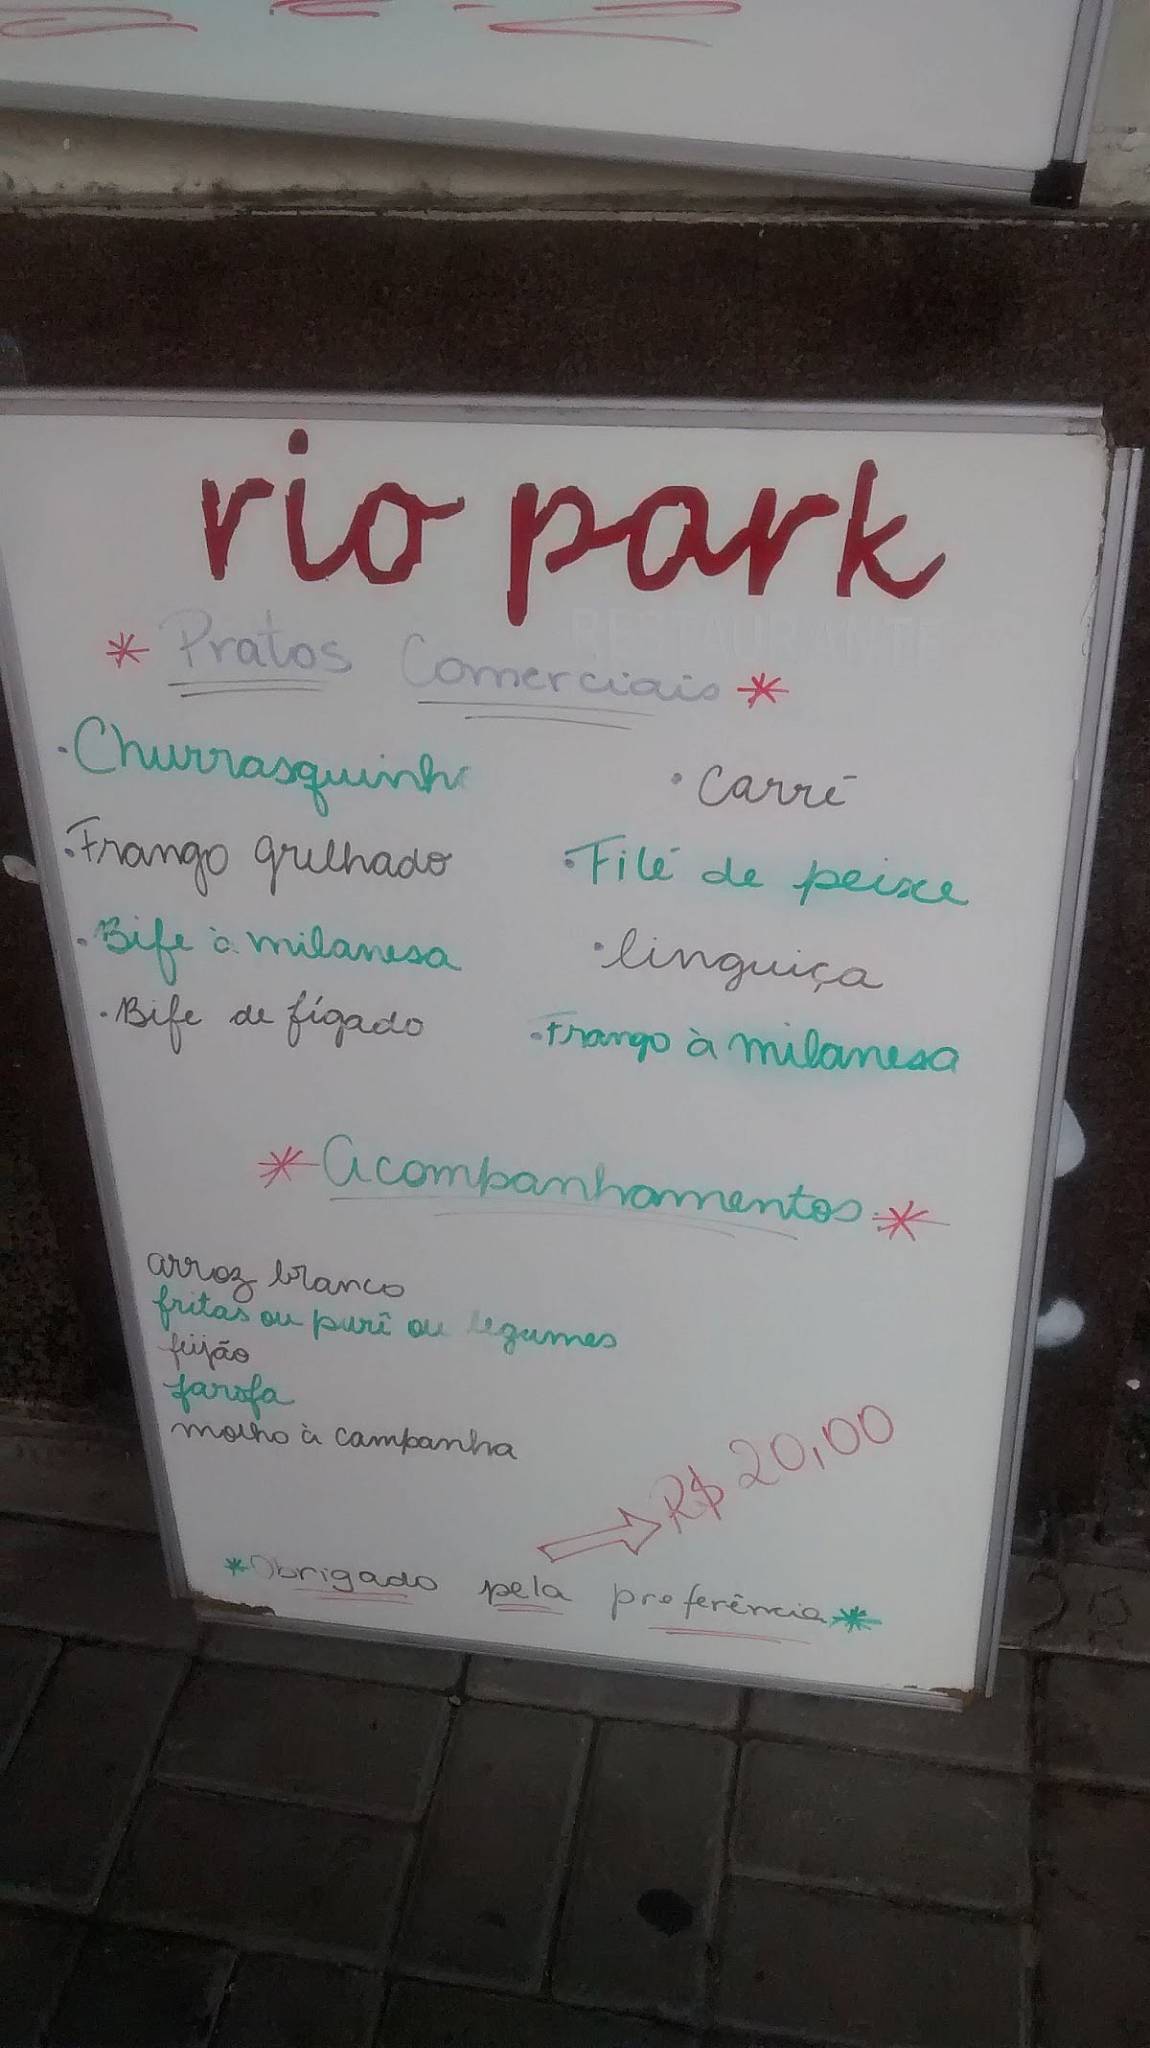 rio park
RESTAURANTE
* Pratos Comerciais *
· Churrasquinho
· Carré
· Frango grelhado
· Filé de peixe
· Bife à milanesa
· linguiça
· Bife de fígado
· Frango à milanesa
* Acompanhamentos *
arroz branco
fritas ou purê ou legumes
feijão
farofa
molho à campanha
R$ 20,00
* Obrigado pela preferência *